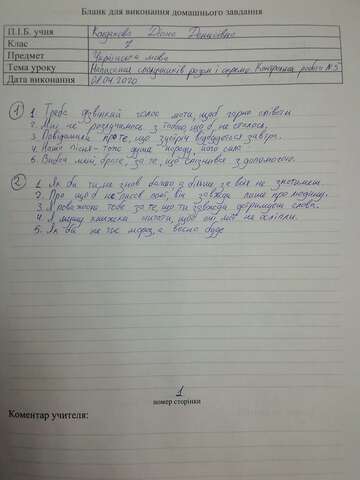 Бланк для виконання домашнього завдання
П.І.Б. учня Діана Денисівна
Клас 7
Предмет Українська мова
Тема уроку Написання сполучників разом і окремо. Контрольна робота №5
Дата виконання 08.04.2020
1 1. Треба дзвінкий голос мати, щоб гарно співати
2. Ми не розлучимось з тобою, що б не сталося.
3. Повідомили про те, що зустріч відбудеться завтра.
4. Наша пісня - то душа народу, його сила
5. Вибач мені, друже, за те, що спізнився з допомогою.
2 1. Як би ти не знав багато а більше за всіх не знатимеш.
2. Про що б не писав поет, він завжди пише про людину.
3. Я поважаю тебе за те, що ти завжди дотримуєш слова.
4. Я мушу книжки читати, щоб очі мої не осліпли.
5. Як би не тис мороз, а весна буде
1
номер сторінки
Коментар учителя: